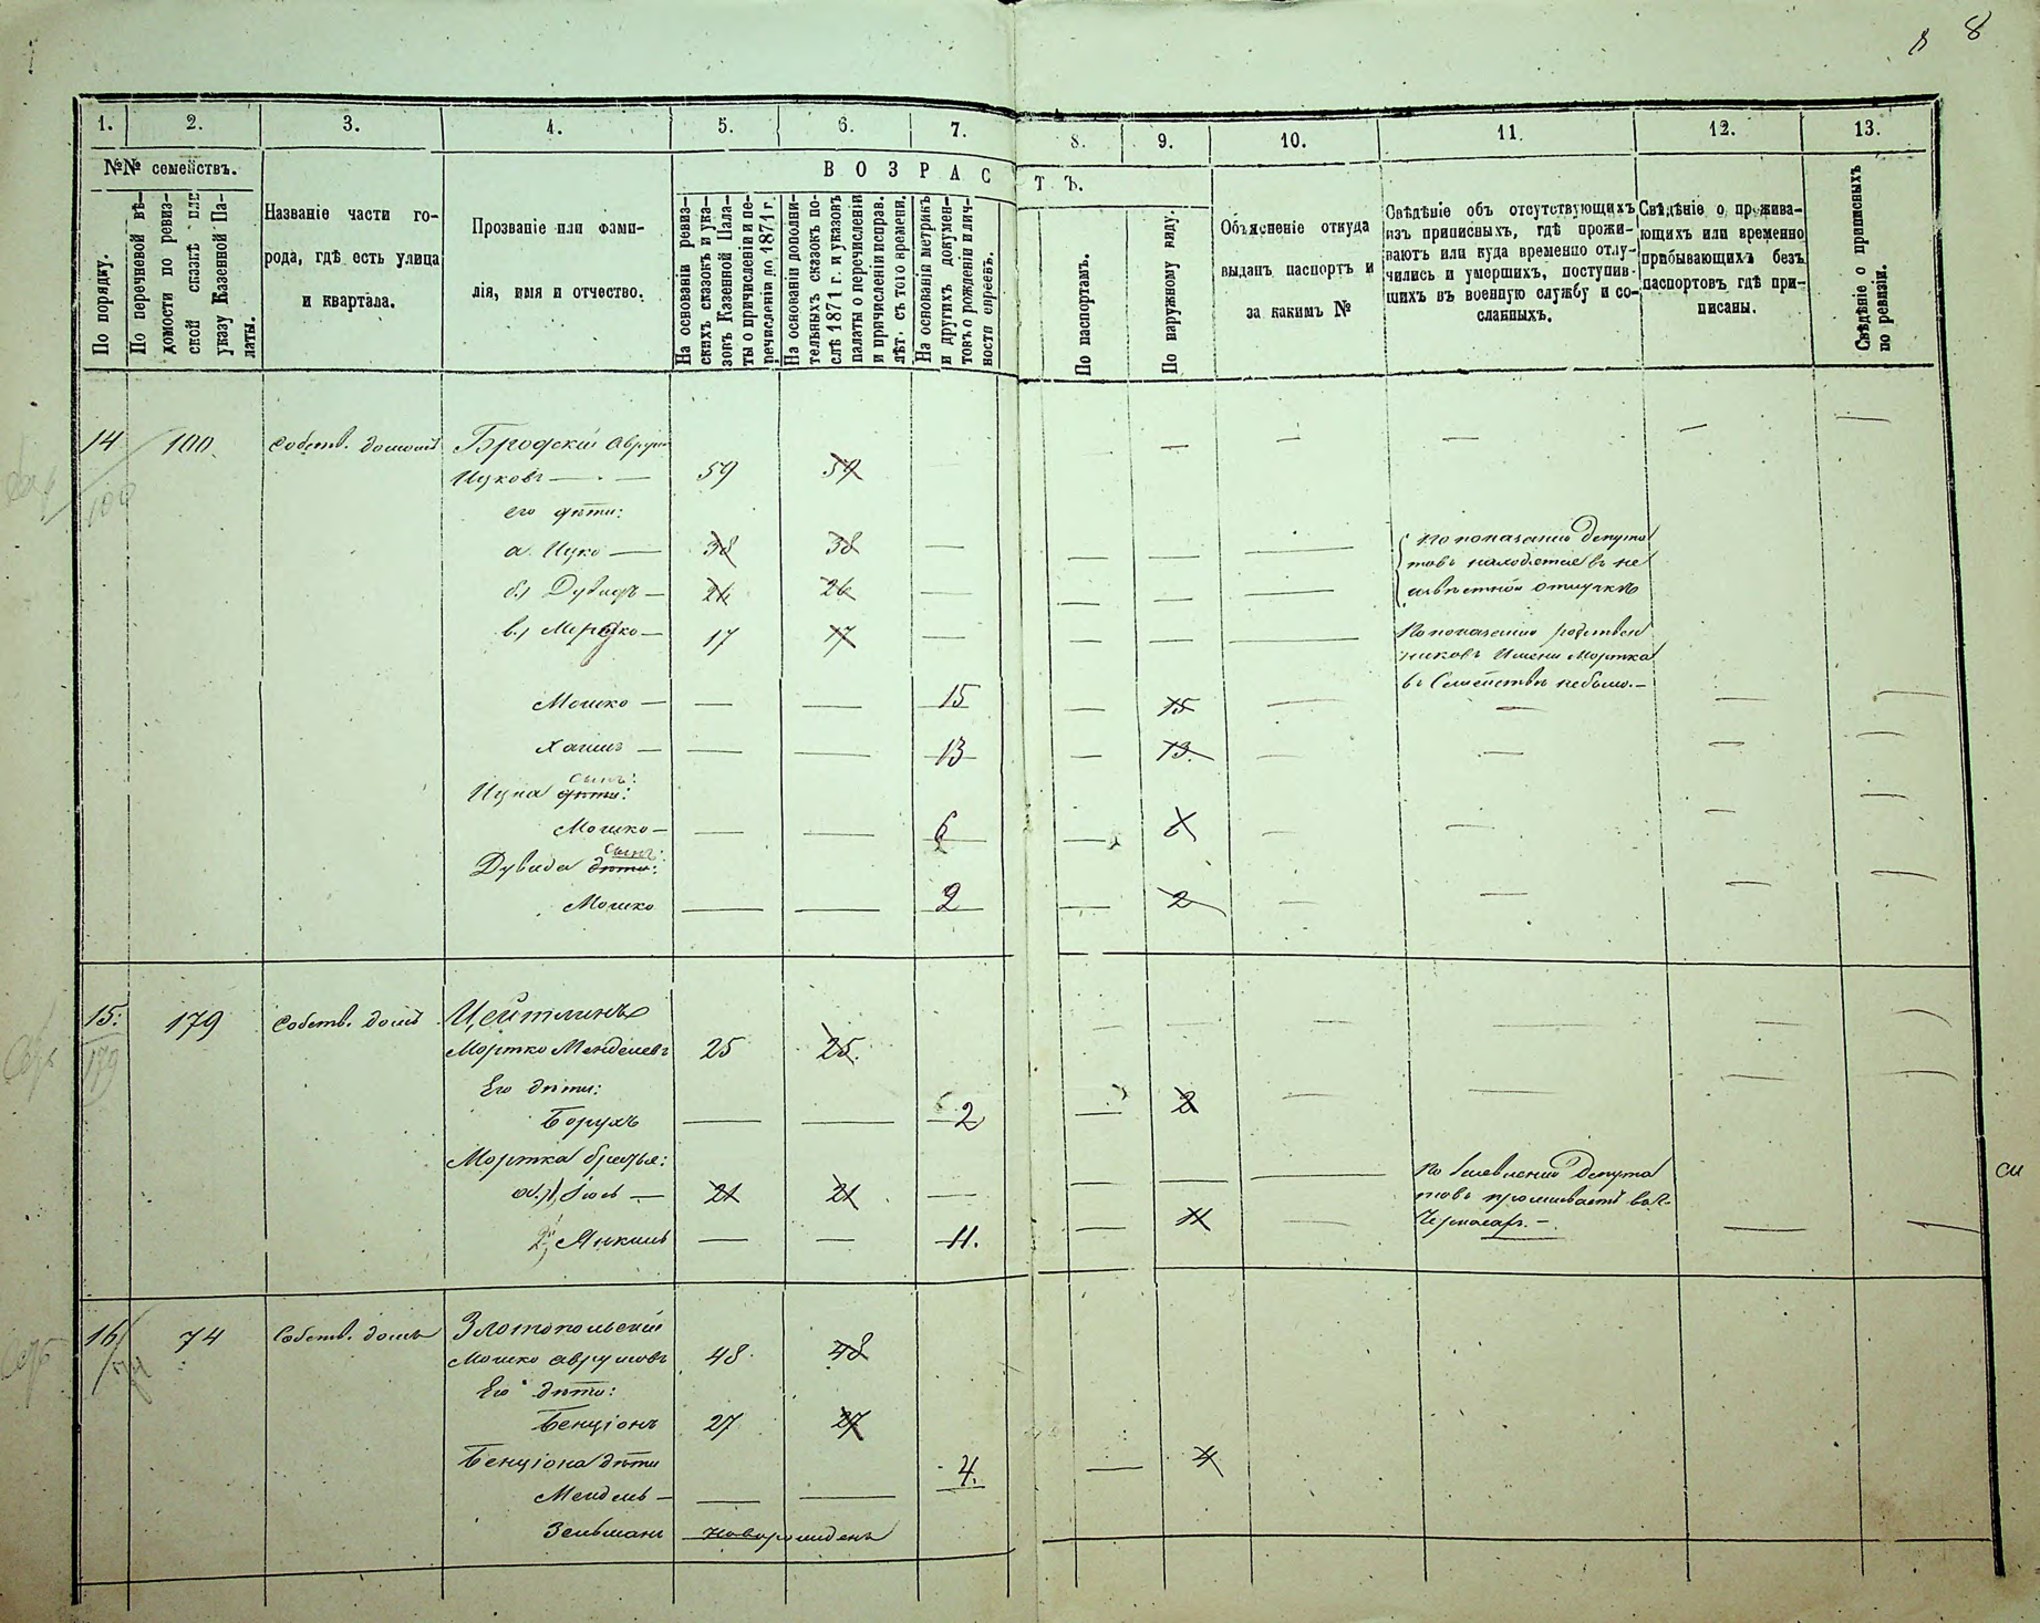 8
1. 2. 3. 4. 5. 6. 7. 8. 9. 10. 11. 12. 13.
№№ семействъ.
В О З Р А С Т Ъ.
По порядку.
По перечневой вѣ-
домости по ревиз-
ской сказкѣ или
указу Казенной Па-
латы.
Названіе части го-
рода, гдѣ есть улица
и квартала.
Прозваніе или фами-
лія, имя и отчество.
На основаніи ревиз-
скихъ сказокъ и ука-
зовъ Казенной Пала-
ты о причисленіи и пе-
речисленіи до 1871 г.
На основаніи дополни-
тельныхъ сказокъ по-
слѣ 1871 г. и указовъ
палаты о перечисленіи
и причисленіи исправ.
лѣт. съ того времени.
На основаніи метрикъ
и другихъ докумен-
товъ о рожденіи и лич-
ности евреевъ.
По паспортамъ.
По наружному виду.
Объясненіе откуда
выданъ паспортъ и
за какимъ №
Свѣдѣніе объ отсутствующихъ
изъ приписныхъ, гдѣ прожи-
ваютъ или куда временно отлу-
чились и умершихъ, поступив-
шихъ въ военную службу и со-
сланныхъ.
Свѣдѣніе о прожива-
ющихъ или временно
прибывающихъ безъ
паспортовъ гдѣ при-
писаны.
Свѣдѣніе о приписныхъ
по ревизіи.
14 100. Собств. домъ Бродскій Аврумъ
100 Ицковъ — 59 59
его дѣти:
а. Ицко — 38 38 — По показанію Депута
б.) Дувидъ — 26 26 — товъ находятся въ не
извѣстной отлучкѣ
в.) Мортко — 17 17 — По показанію родствен
никовъ Имени Мортка
въ Семействѣ небыло. —
Мошко — 15 15
Хаимъ — 13 13.
Ицка дѣти: сынъ:
Мошко — 6 6
Дувида дѣти: сынъ:
Мошко 2 2
15. 179 Собств. домъ Цейтлинъ
179 Мортко Менделевъ 25 25.
Его дѣти:
Борухъ 2 2
Мортка братья: По заявленію Депута
а.) Іось — 21 21 товъ проживаетъ въ г.
2) Янкель 11. 11 Черкасахъ. —
16 74 Собств. домъ Златопольскій
74 Мошко Аврумовъ 48 48
Его дѣти:
Бенціонъ 27 27
Бенціона дѣти
Мендель — 4. 4
Зельманъ новорожденъ